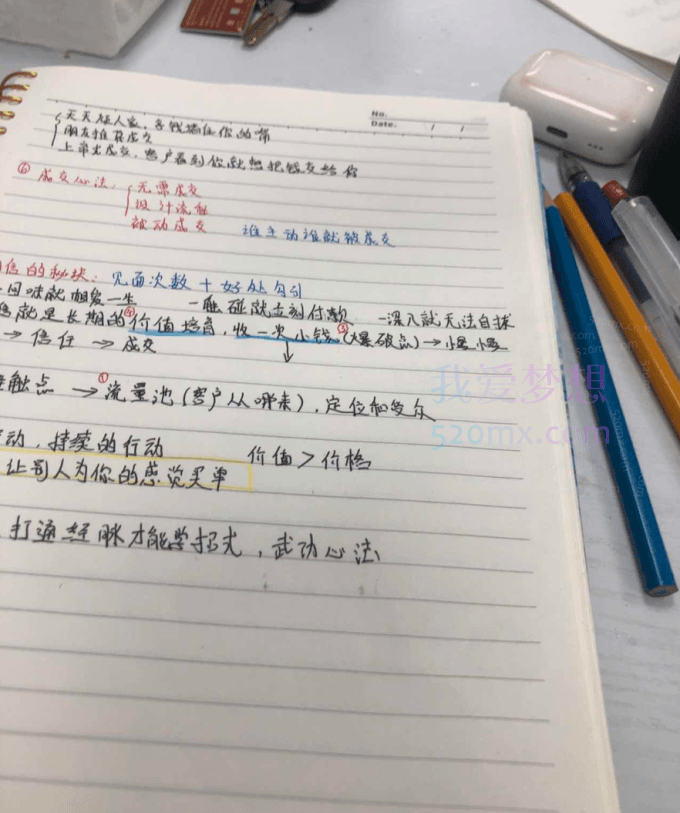 No.
Date. / /
天天征人家,多钱揣住你的
朋友推荐成交
上帝式成交,客户看到你就想把钱交给你
⑥ 成交心法:
无票成交
设计流程
被动成交
谁主动谁就被成交
信的秘诀:见面次数 + 好处勾引
回味就相爱一生 一触碰就立刻付款 一深入就无法自拔
就是长期的④价值培育,收一次小钱③(爆破点)→慢慢
→ 信任 → 成交
触点 →①流量池(客户从哪来),定位和受众
动,持续的行动 价值 > 价格
让别人为你的感觉买单
打通经脉才能学招式,武功心法
我爱梦想
520mx.com